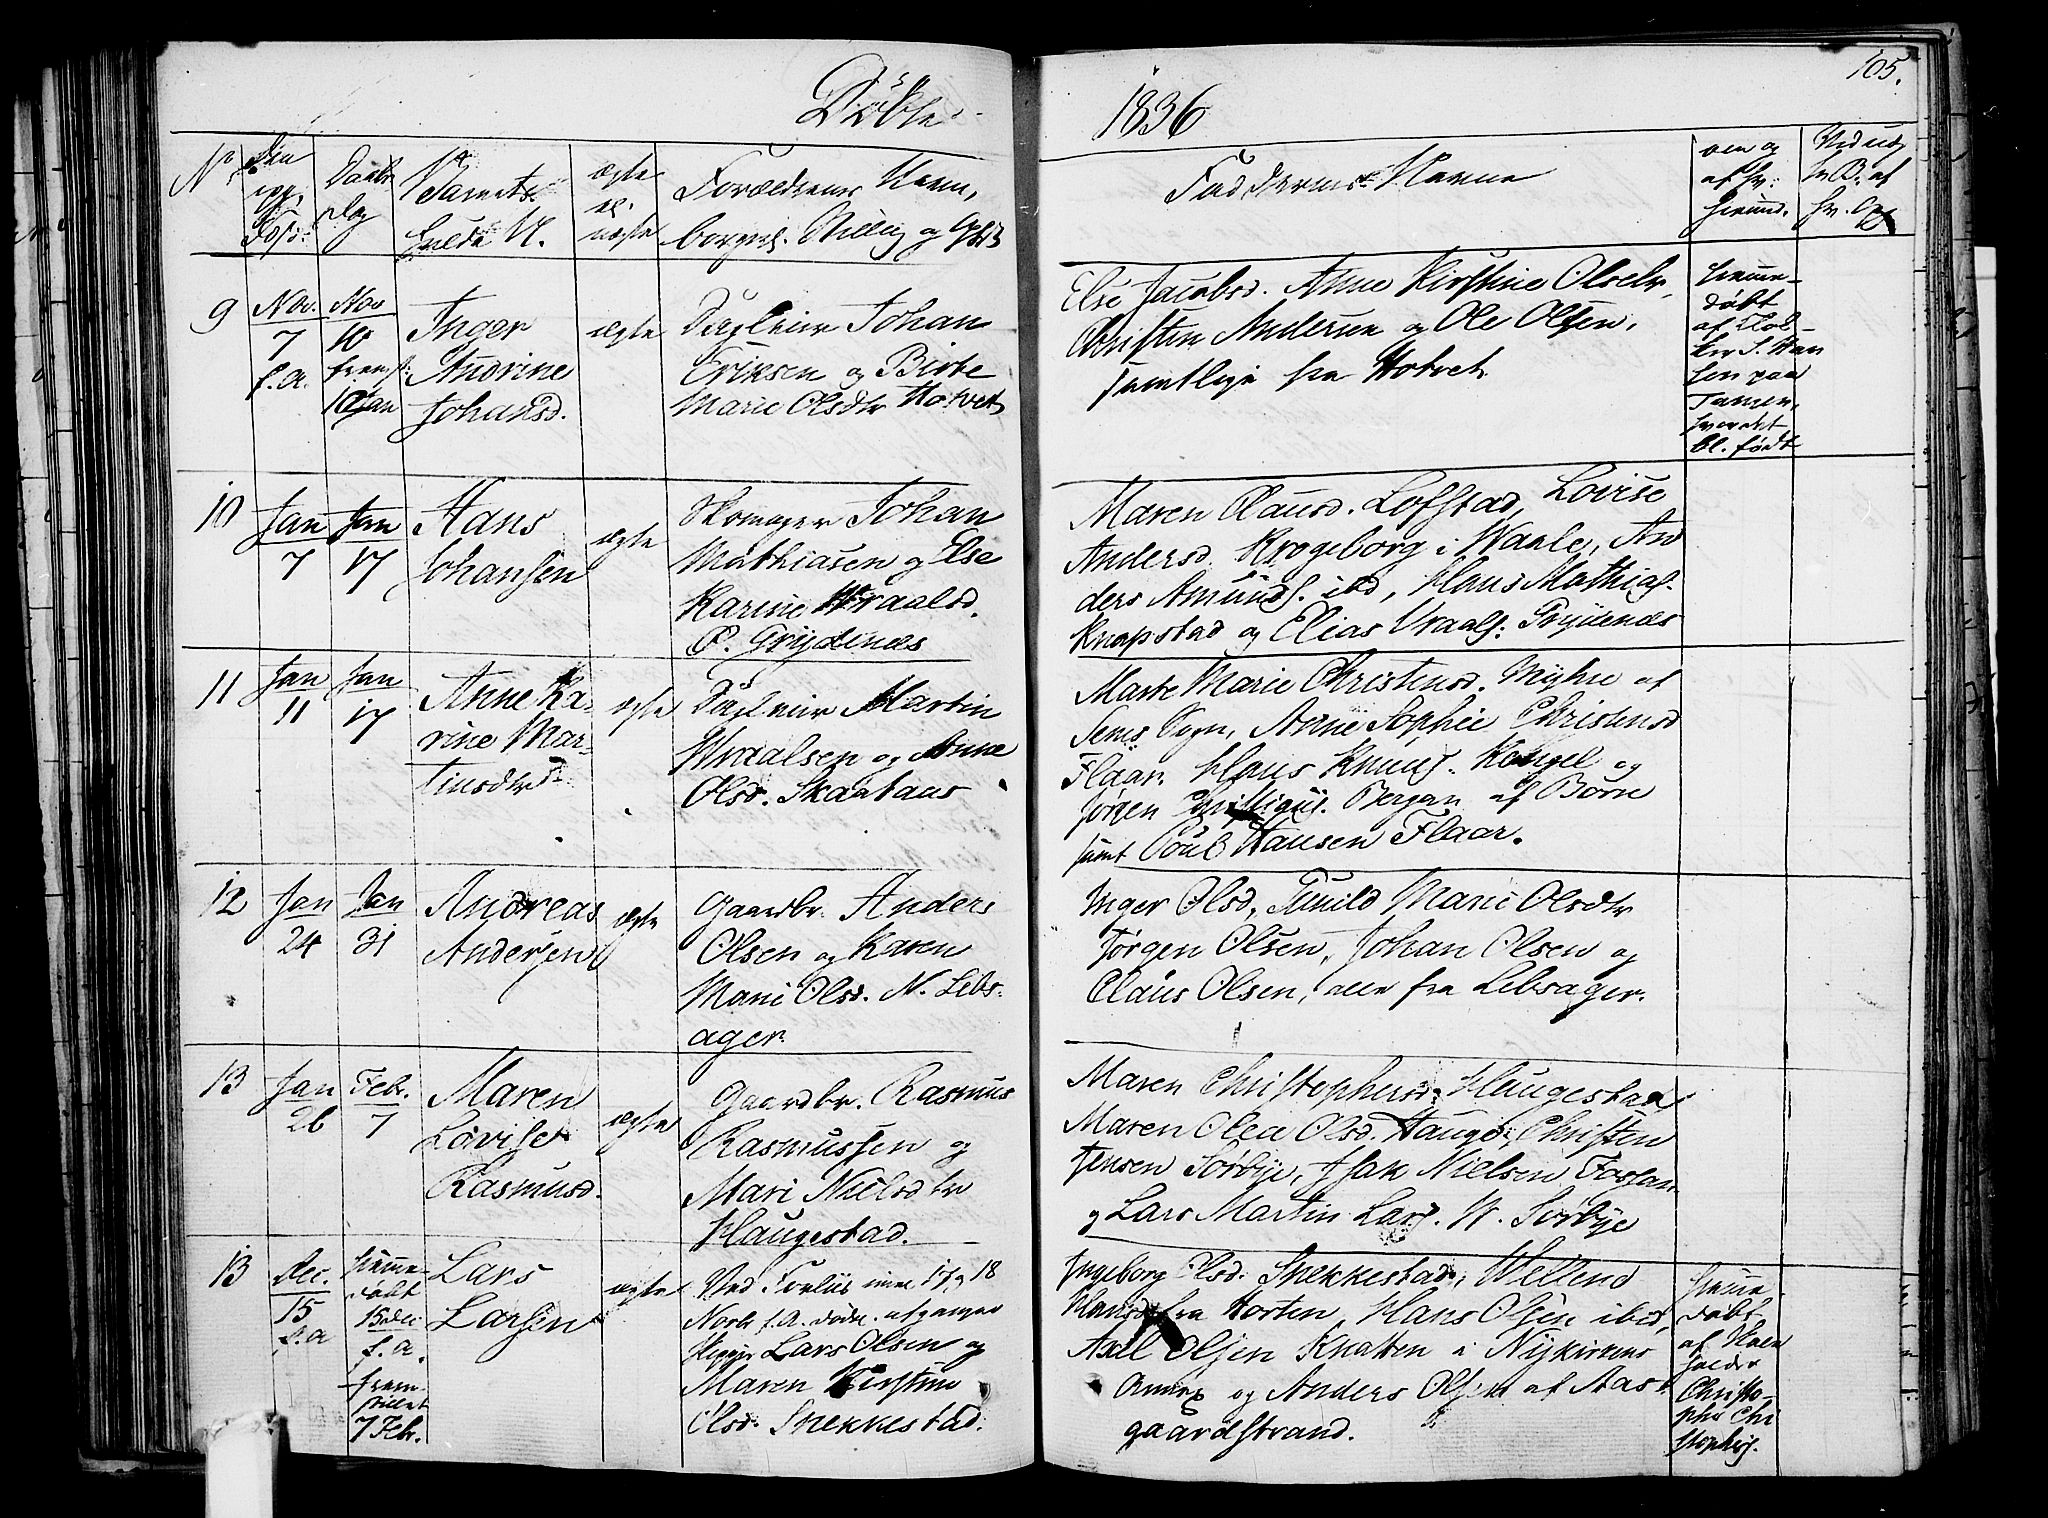 Döbte
1836
105.
No
Den
og
Föds:
Daabs
dag
Barnets
fulde N.
ægte
el.
uægte
Forældrenes Navn,
borgerl. Stilling og
Faddernes Navne
om og
af hv:
hjemmed.
9
Nov.
7
f.a.
Nov
10
fremst:
10 Jan
Inger
Andrine
Johansd.
ægte
Dagleier Johan
Eriksen og Birte
Marie Olsdtr Hotvet
Else Jacobsd. Anne Kirstine Olsdtr,
Christen Andersen og Ole Olsen,
samtlige fra Hotvet
hjemme-
döbt
af Kir-
S. Han
sen paa
hvor det
bl. födt
10
Jan
7
Jan
17
Hans
Johansen
ægte
Skomager Johan
Mathiasen og Else
Karine Wraalsd.
P. Grydenæs
Maren Clausd. Lofstad, Lovise
Andersd. Krogeborg i Waale, An
ders Amunds. ibd, Hans Mathias.
Knapstad og Elias Vraals: Grydenæs
11
Jan
11
Jan
17
Anne Ka-
rine Mar-
tinsdtr
ægte
Dagleier Martin
Wraalsen og Anne
Olsd. Skaataas
Marte Marie Christensd. Myhre af
Sems Sogn, Anne Sophie Christensd
Flaar, Hans Knuds. Kongel og
Jörgen Bergan af Borre
samt Poul Hansen Flaar.
12
Jan
24
Jan
31
Andreas
Andersen
ægte
Gaardbr. Anders
Olsen og Karen
Marie Olsd. N. Lebs-
ager
Inger Olsd, Gunild Marie Olsdtr
Jörgen Olsen, Johan Olsen og
Claus Olsen, alle fra Lebsager.
13
Jan
26
Febr.
7
Maren
Lovise
Rasmusd.
ægte
Gaardbr. Rasmus
Rasmussen og
Mari Nielsdtr
Haugestad.
Maren Christophersd. Haugestad,
Maren Olea Olsd. Hauge, Christen
Jensen Sörbye, Isak Nielsen Fossan
og Lars Martin Lars. N. Sörbye
13
Dec.
15
f.a
hjemme-
döbt
15 Dec
f.a.
frem-
stillet
7 Febr.
Lars
Larsen
ægte
Ved Forliis imel. 17 og 18
Novb f.A. döde. afgangne
Lars Olsen og
Maren Kirstine
Olsd. Snekkestad.
Ingeborg Olsd. Snekkestad,
Hansd. fra Horten, Hans Olsen ibid,
Axel Olsen Knatten i Nykirkens
Annex og Anders Olsen af Aas-
gaardstrand.
hjemme-
döbt
af Kirke
Christo-
pher Chri
stophers.